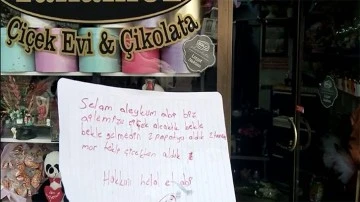 Çiçek Evi & Çikolata
Selam aleykum abi biz
çiçek alacaktık bekle
bekle gelmedin 1 papatya aldık 1 tane
mor renkli çiçekten aldık
Hakkını helal et abi